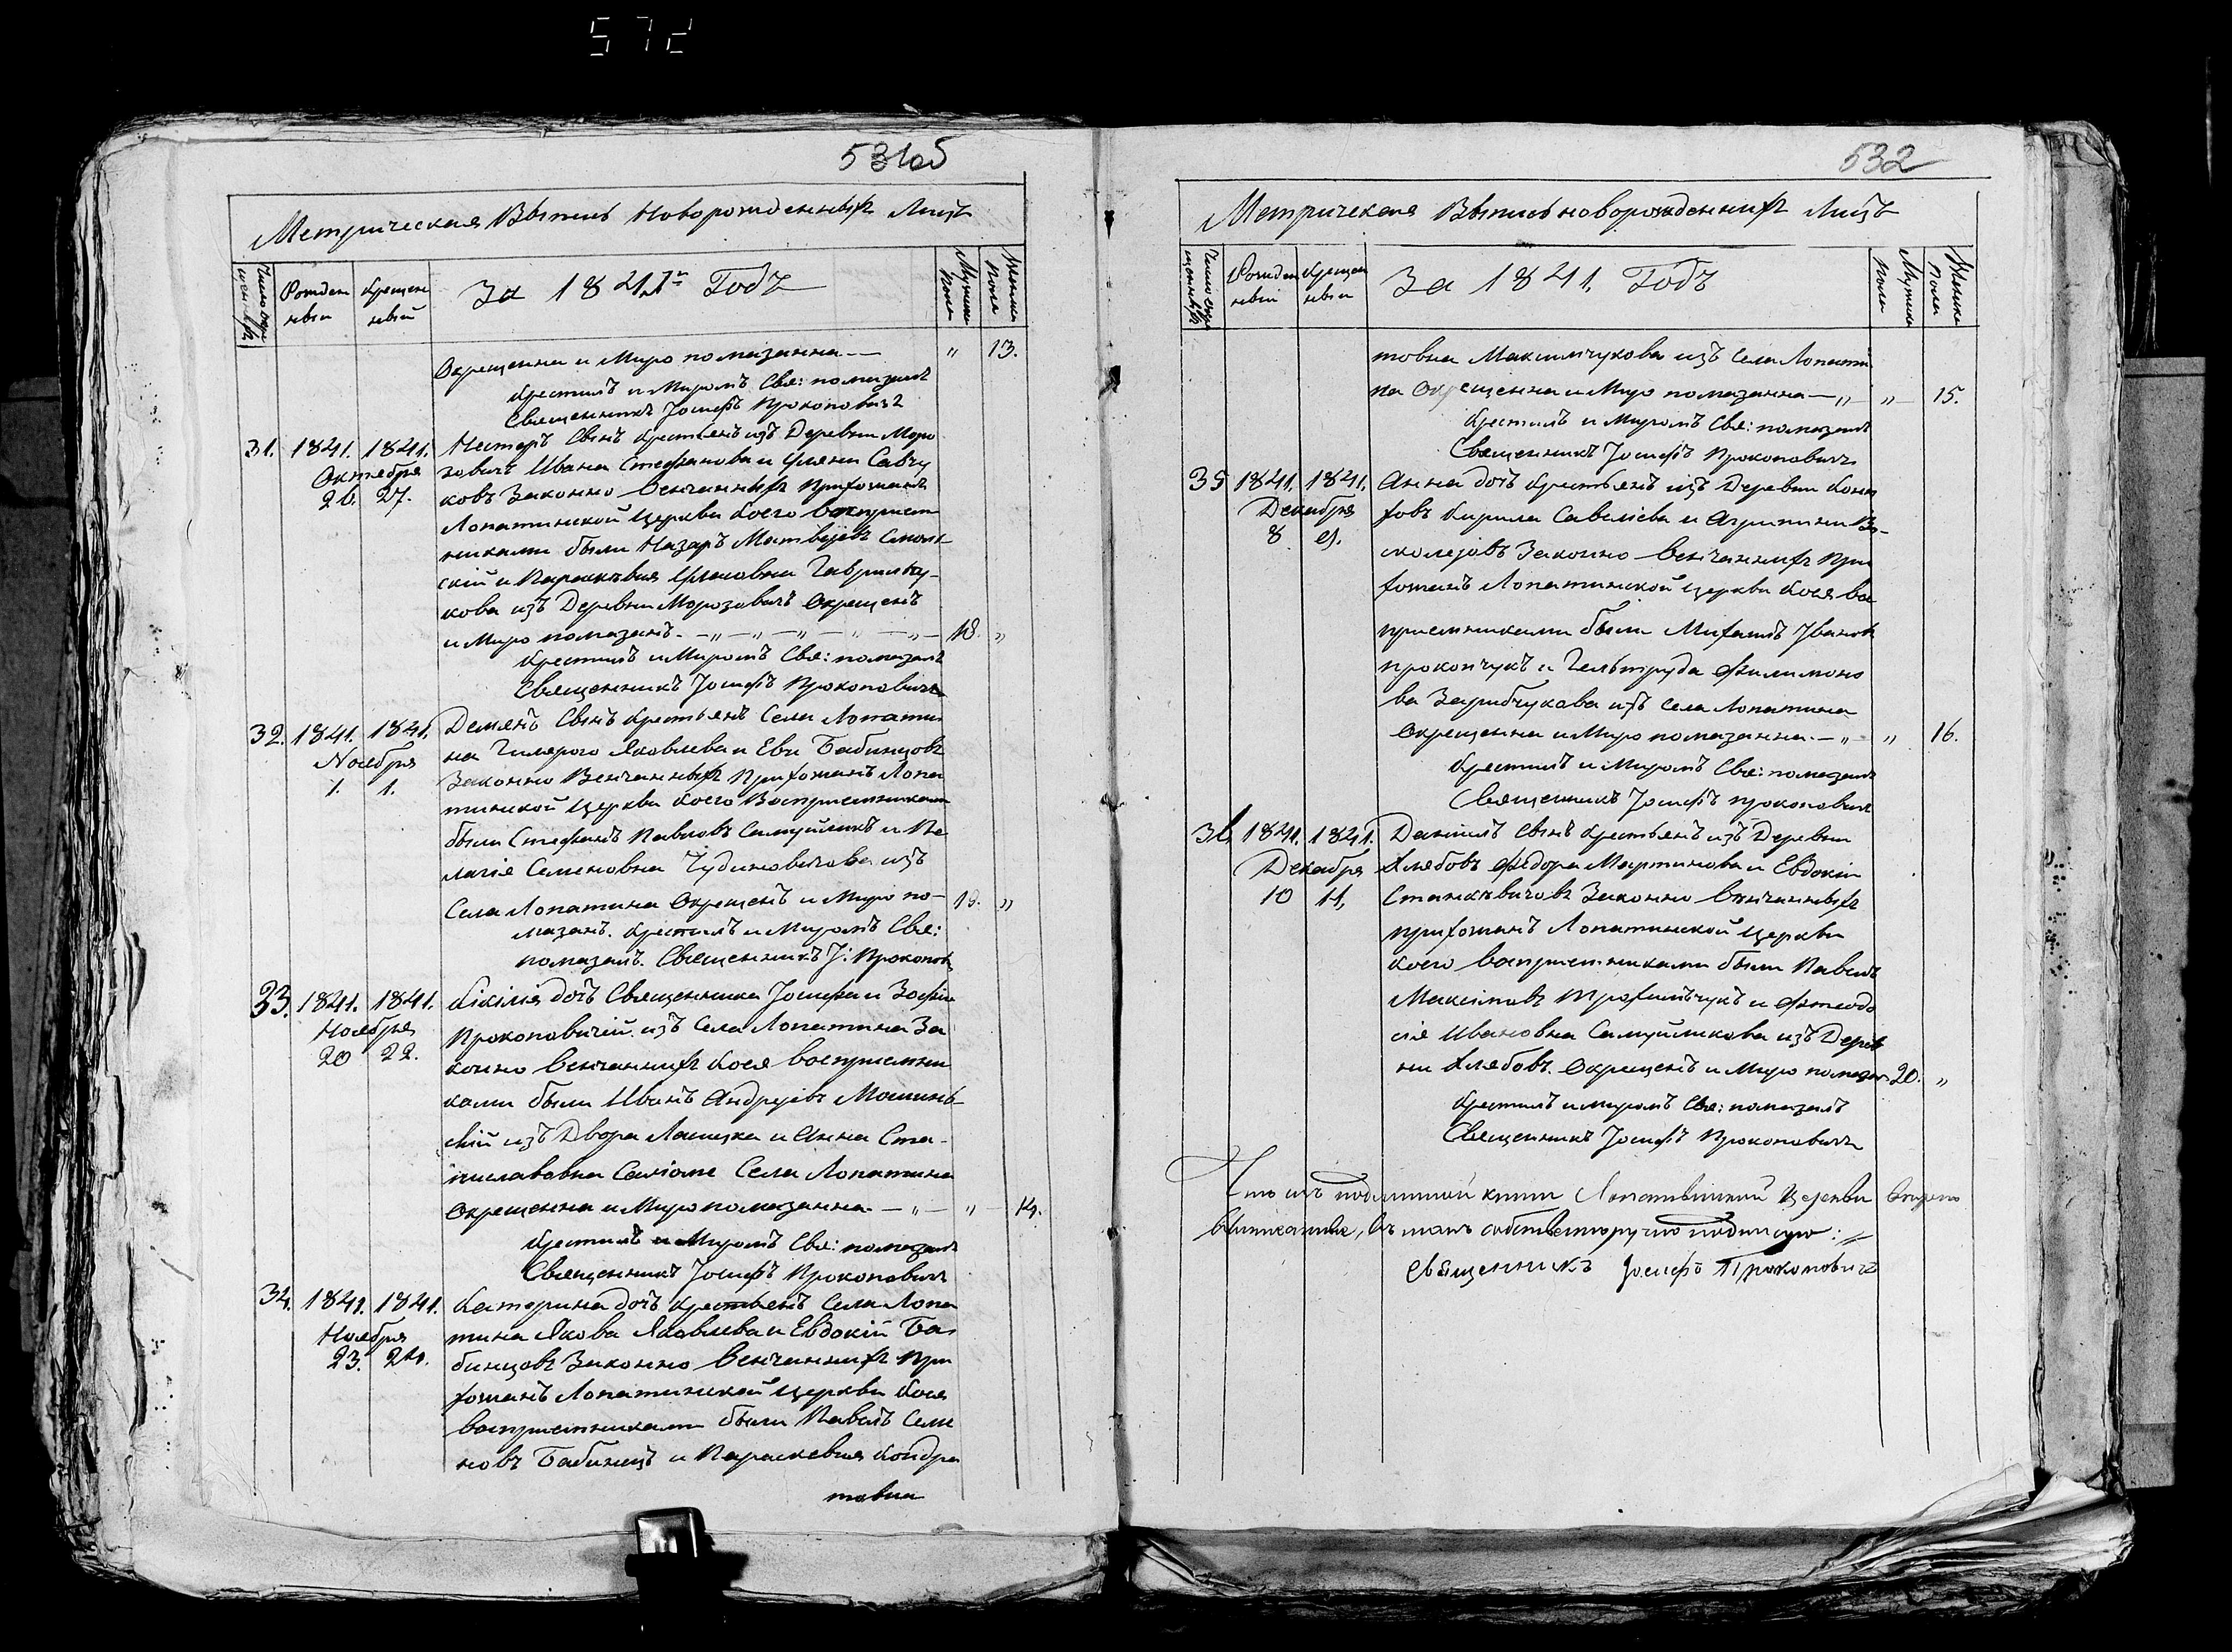 572
531об
Метрическая Выпись Новорожденныхъ Лицъ
Число окре щенныхъ
Рожденныи
Крещенный
За 1841й Годъ
Мужеска Пола
Женска Пола
Окрещенна и Миро помазанна — " 13.
Крестилъ и Миромъ Свя: помазалъ
Священникъ Іосифъ Прокоповичъ
31. 1841. 1841. Нестеръ Сынъ Крестьянъ изъ Деревни Моро
Октября зовичъ Ивана Стефанова и Уляни Савчу
26. 27. ковъ Законно Венчаннихъ Прихожанъ
Лопатинской Церкви Коего Воспріем
никами были Назаръ Матвѣевъ Смоли
скій и Параскѣвия Гаврилчу-
кова изъ Деревни Морозовичъ Окрещенъ
и Миро помазанъ. — " — " — " — " — " — 18. "
Крестилъ и Миромъ Свя: помазалъ
Священникъ Іосифъ Прокоповичъ
32. 1841. 1841. Демянъ Сынъ Крестьянъ Села Лопати
Ноября на Яковлева и Еви Бабинцовъ
1. 1. Законно Венчанныхъ Прихожанъ Лопа
тинской Церкви Коего Воспріемниками
были Стефанъ Павловъ Самуйликъ и Пе
лагія Семеновна Чудиновичова изъ
Села Лопатина Окрещенъ и Миро по- 19. "
мазанъ. Крестилъ и Миромъ Свя:
помазалъ. Священникъ І: Прокопов
33. 1841. 1841. Кікилія дочъ Священника Іосифа и Зофіи
Ноября Прокоповичій изъ Села Лопатина За
20 22. конно Венчаннихъ Коея Воспріемни
ками были Иванъ Андреіевъ Мошинь-
скій изъ Двора и Анна Ста-
ниславовна Села Лопатина
Окрещенна и Миро помазанна — " — " — 14.
Крестилъ и Миромъ Свя: помазалъ
Священникъ Іосифъ Прокоповичъ
34. 1841. 1841. Катерина дочъ Крестьянъ Села Лопа
Ноября тина Якова Яковлева и Евдокіи Ба
23. 24. бинцовъ Законно Венчаннихъ При
хожанъ Лопатинской Церкви Коея
воспріемниками были Павелъ Семе
новъ Бабинецъ и Параскевия Кондра
товна
532
Метрическая Выпись новорожденнихъ Лицъ
Число окре щеннихъ
Рожденный
Крещенныи
За 1841. Годъ
Мужеска Пола
Женска Пола
товна Максимчукова изъ Села Лопати
на Окрещенна и Миро помазанна — " — " — 15.
Крестилъ и Миромъ Свя: помазалъ
Священникъ Іосифъ Прокоповичъ
35 1841. 1841. Анна дочъ Крестьянъ изъ Деревни
Декабря Кирила Савеліева и Агрипини
8 9. Законно Венчаннихъ При
хожанъ Лопатинской Церкви Коея вос
пріемниками были Михаилъ Івановъ
прокопчукъ и Гельтруда Филимоно
ва Зарибчукова изъ Села Лопатина
Окрещенна и Миро помазанна. — " — " 16.
Крестилъ и Миромъ Свя: помазалъ
Священникъ Іосифъ Прокоповичъ
36 1841. 1841. Даніилъ Сынъ Крестьянъ изъ Деревни
Декабря Хлябовъ Федора Мартинова и Евдокіи
10 11, Станкѣвичовъ Законно Венчанныхъ
прихожанъ Лопатинской Церкви
коего воспріемниками были Павелъ
Максімовъ Трохимчукъ и Фтеодо
сія Ивановна Самуйликова изъ Дерев
ни Хлябовъ. Окрещенъ и Миро помазан 20. "
Крестилъ и миромъ Свя: помазалъ
Священникъ Іосифъ Прокоповичъ
Что изъ подлинной книги Лопатинской Церкви
въ томъ собственноручно подписую:
Священникъ Іосифъ Прокоповичъ